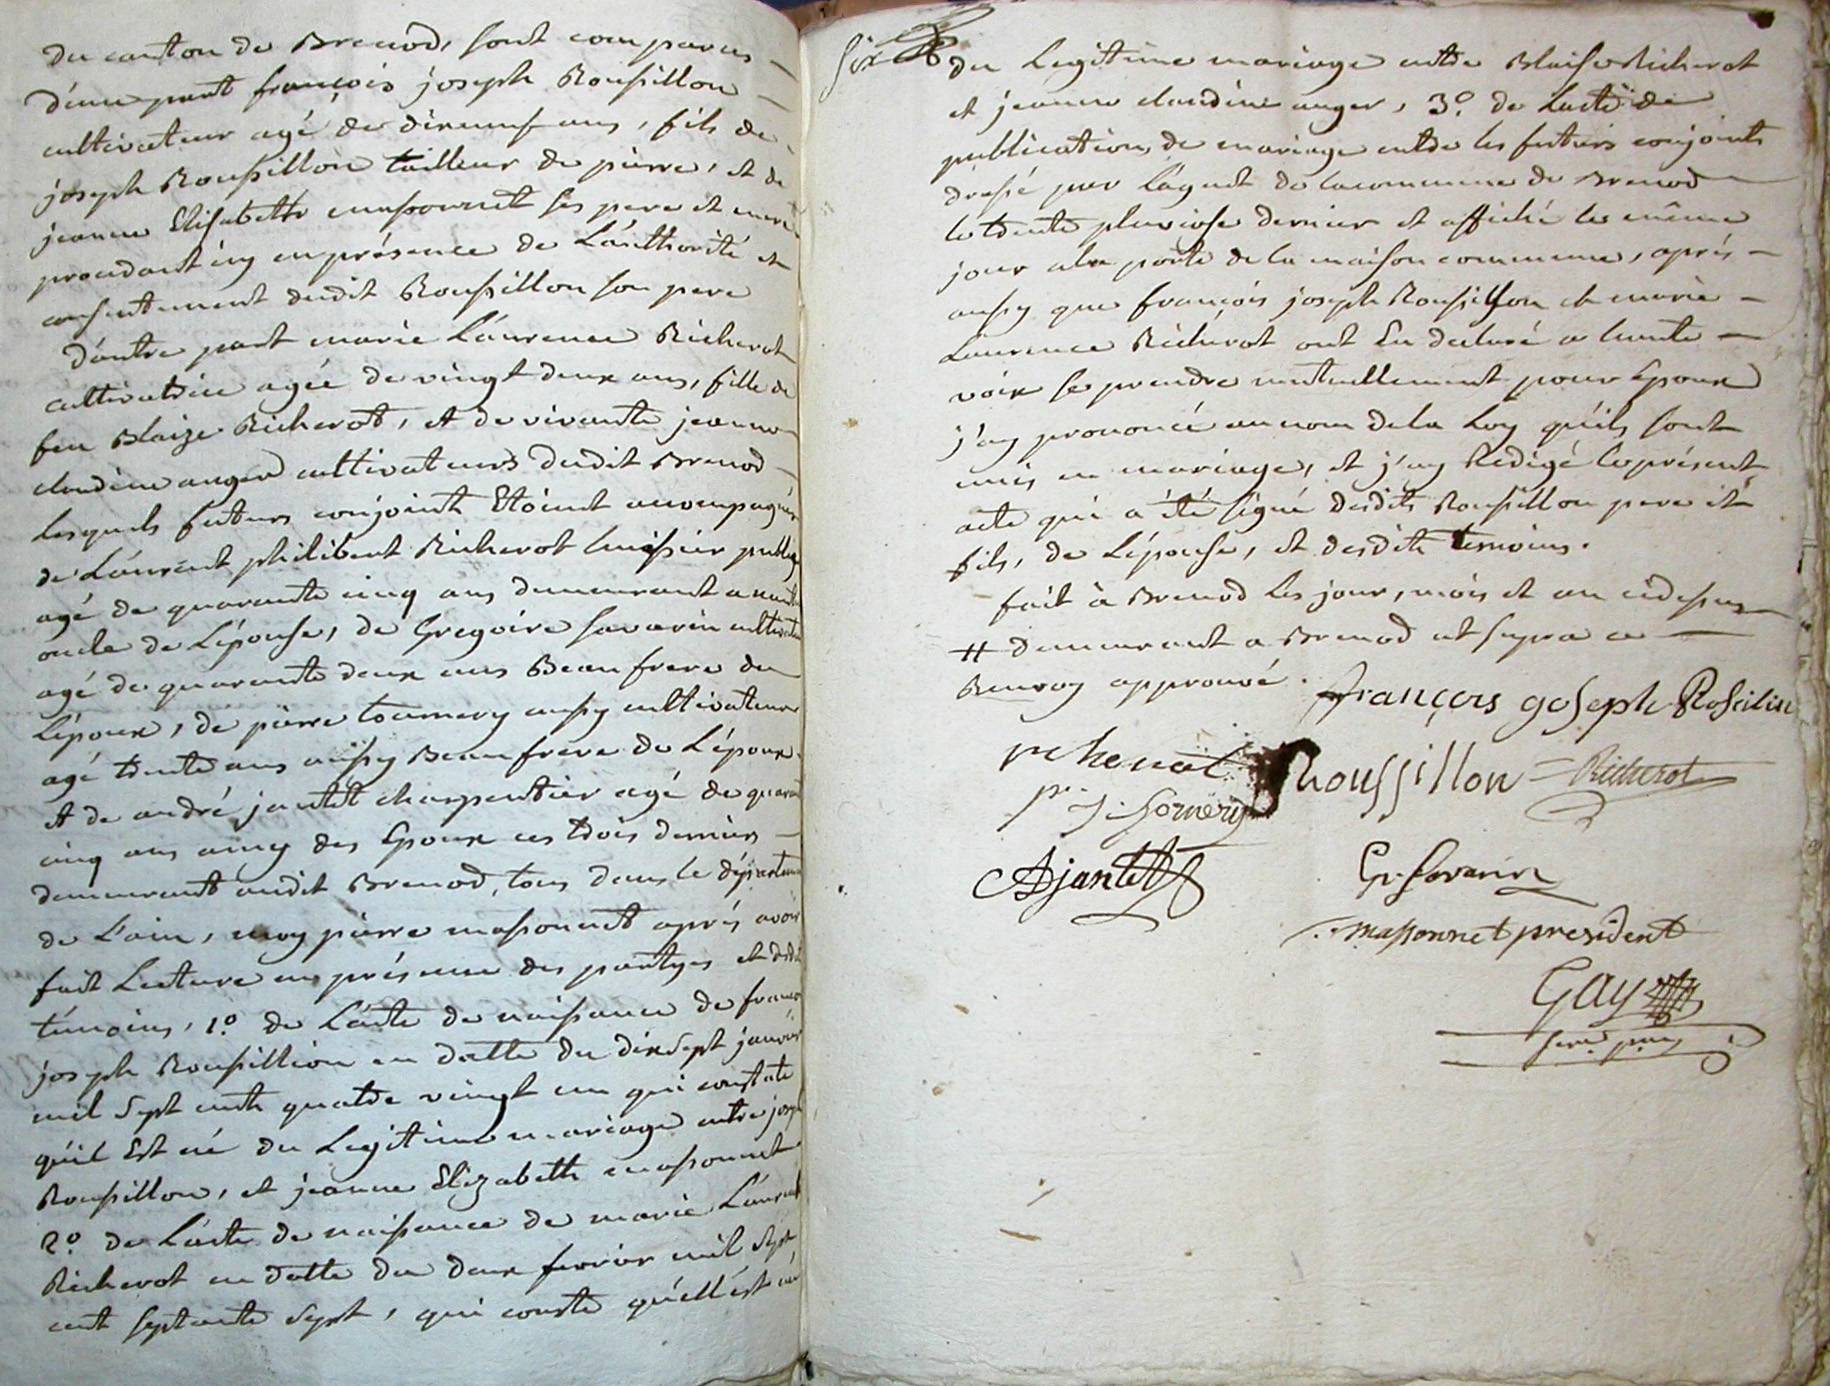 du canton de Brenod, sont comparus
d'une part françois joseph Roussillon
cultivateur agé de dixneuf ans, fils de
joseph Roussillon tailleur de pierre, et de
jeanne Elisabette massonnet ses pere et mere
procedant icy en présence de L'authorité et
consentement dudit Roussillon son pere
d'autre part marie Laurence Richerot
cultivatrice agée de vingt deux ans, fille de
feu Blaize Richerot, et de vivante jeanne
claudine auger cultivateurs dudit Brenod
lesquels futurs conjoints Etoient accompagnés
de Laurent philibert Richerot huissier public
agé de quarante cinq ans demeurant a
oncle de L'épouse, de Gregoire savarin cultivateur
agé de quarante deux ans Beaufrere du
L'époux, de pierre tournery aussy cultivateur
agé trente ans aussy Beaufrere de L'époux
et de andré jantet charpentier agé de quarante
cinq ans amy des Epoux ces trois derniers
demeurants audit Brenod, tous dans le département
de L'ain, moy pierre massonnet aprés avoir
fait Lecture en présence des partyes et desdits
témoins, 1.º de L'acte de naissance de françois
joseph Roussillion en datte du dixsept janvier
mil sept cents quatre vingt un qui constate
qu'il Est né du Legitime mariage entre joseph
Roussillon, et jeanne Elizabeth massonnet
2.º de L'acte de naissance de marie Laurence
Richerot en datte du deux fevrier mil sept
cent septante sept, qui conste qu'ell'est née
six
du Legitime mariage entre Blaise Richerot
et jeanne claudine auger, 3.º de L'acte de
publication de mariage entre les futurs conjoints
dressé par l'agent de la commune de Brenod
le trente pluviose dernier et affiché le même
jour a la porte de la maison commune, aprés
aussy que françois joseph Roussillon et marie
Laurence Richerot ont Eu declaré a haute
voix se prendre mutuellement pour Epoux
j'ay prononcé au nom de la Loy qu'ils sont
unis en mariage, et j'ay Redigé le présent
acte qui a été signé desdits Roussillon pere et
fils, de L'épouse, et desdits temoins.
fait à Brenod les jour, mois et an cidessus
# demeurant a Brenod ut supra ce
Renvoy approuvé.
françois goseph Rosilin
Roussillon
Richerot
A jantet
Gr. Savarin
massonnet president
Gay